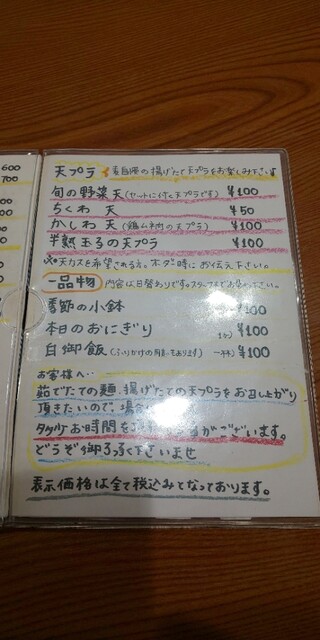 600
700
天プラ
自慢の揚げたて天プラをお楽しみ下さいす
旬の野菜天(セットに付く天プラです) ¥100
ちくわ 天 ¥50
かしわ 天 (鶏ムネ肉の天プラ) ¥100
半熟玉子の天プラ ¥100
※天カスを希望される方。オーダー時にお伝え下さい。
一品物 内容は日替わりです。スタッフまでお
季節の小鉢 ¥100
本日のおにぎり 1コ ¥100
白御飯 (ふりかけの用意もあります) 一杯 ¥100
お客様へ…
茹でたての麺、揚げたての天プラをお召し上がり
頂きたいので、場合
多少お時間を ございます。
どうぞ御了承下さいませ
表示価格は全て税込みとなっております。